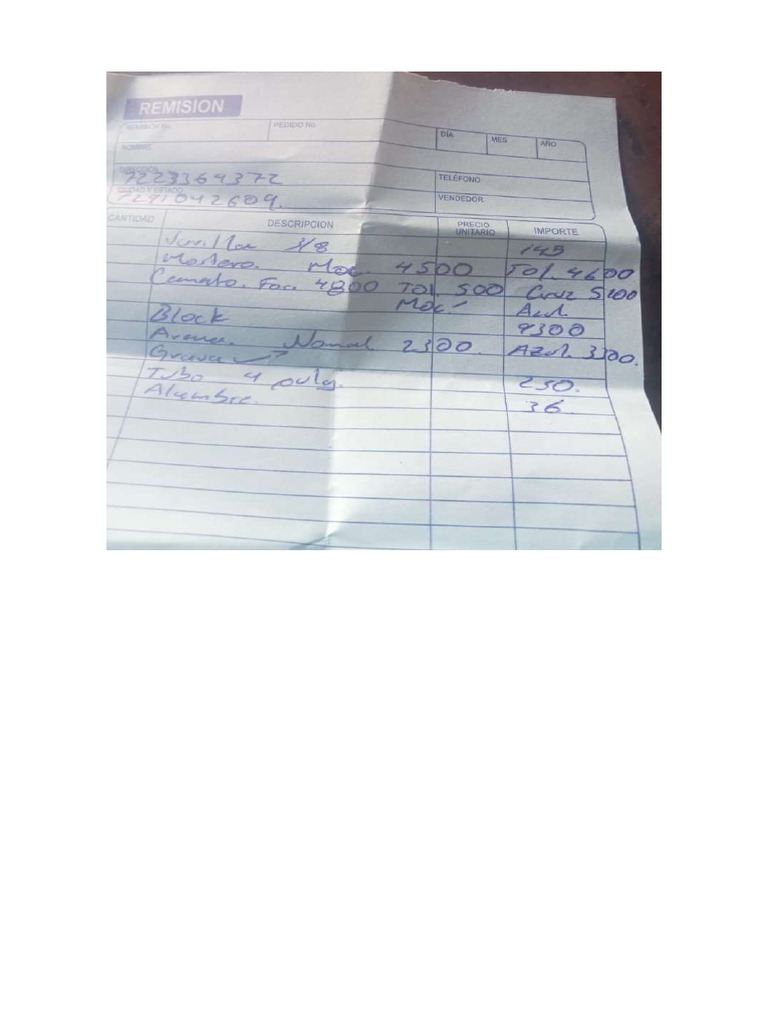 REMISION
REMISION No. PEDIDO No. DÍA MES AÑO
NOMBRE
DIRECCIÓN TELÉFONO
7223364372
CIUDAD Y ESTADO VENDEDOR
7291042609.
CANTIDAD DESCRIPCION PRECIO UNITARIO IMPORTE
Varilla 3/8 145
Mortero. Moc. 4500 Tol. 4600
Cemento. Foc. 4800 Tol. 500 Cruz 5200
Moc. Azul
Block 9300
Arena. Nomal 2300. Azul. 3300.
Grava
Tubo 4 pulg. 250.
Alambre. 36.